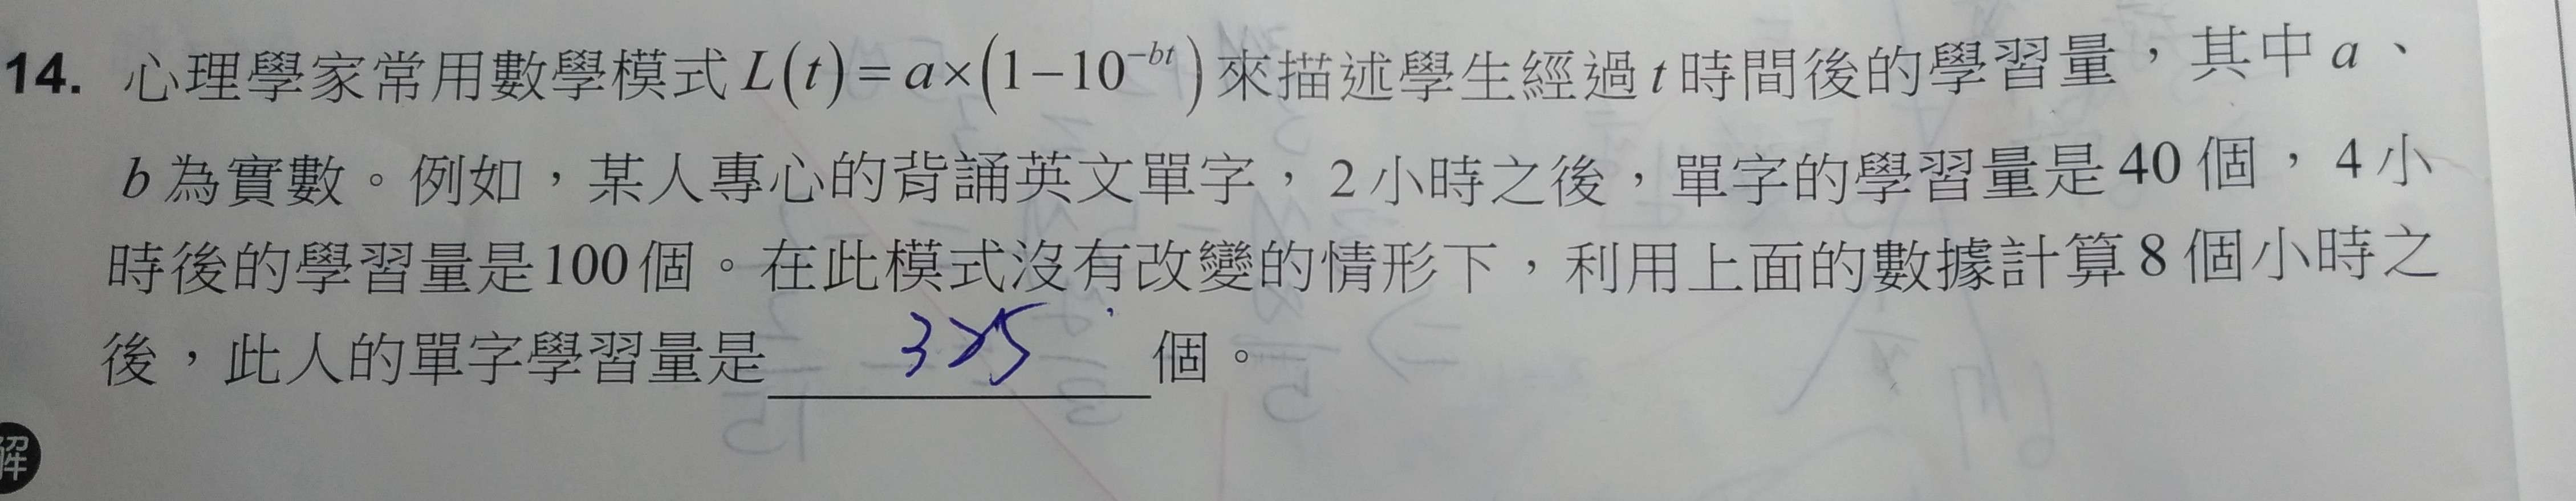 14. 心理學家常用數學模式 L(t)=a×(1−10^{-bt}) 來描述學生經過 t 時間後的學習量，其中 a、
b 為實數。例如，某人專心的背誦英文單字，2 小時之後，單字的學習量是 40 個，4 小
時後的學習量是 100 個。在此模式沒有改變的情形下，利用上面的數據計算 8 個小時之
後，此人的單字學習量是 325 個。
解